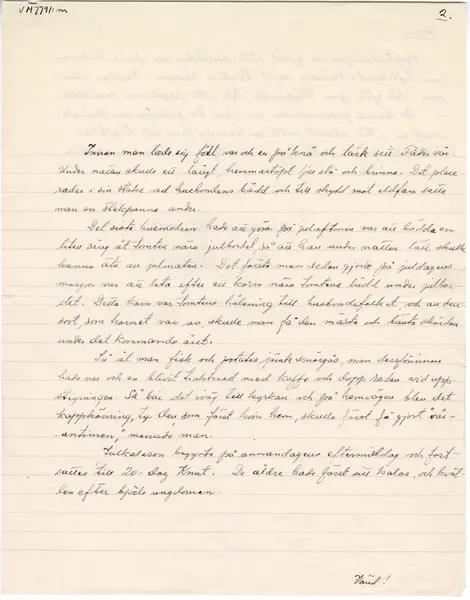 VM7791:m
2.
Innan man lade sig föll var och en på knä och läste sitt Fader vår.
Under natten skulle ett langt, hemmastöpt ljus stå och brinna. Det place-
rades i sin stake vid husbondens bädd och till skydd mot eldfara sattes
man en stekpanna under.
Det sista husmodern hade att göra på julaftonen var att bädda en
liten säng åt tomten nära julbordet så att han under natten lätt skulle
kunna äta av julmaten. Det första man sedan gjorde på juldagens
morgon var att leta efter ett korn nära tomtens bädd under julbor-
det. Detta korn var tomtens hälsning till husbondefolket och av den
sort, som kornet var av, skulle man få den mästa och bästa skörden
under det kommande året.
Så åt man fisk och potatis jämte smörgås, men dessförinnan
hade var och en blivit trakterad med kaffe och dopp redan vid upp-
stigningen. Så bar det iväg till kyrkan och på hemvägen blev det
kappkörning, ty den som först kom hem, skulle först få gjort "vår-
antinnen," menade man.
Julkalasen begynte på annandagens eftermiddag och fort-
sattes till 20-dag Knut. De äldre hade först sitt kalas, och kväl-
len efter bjöds ungdomen.
Vänd!